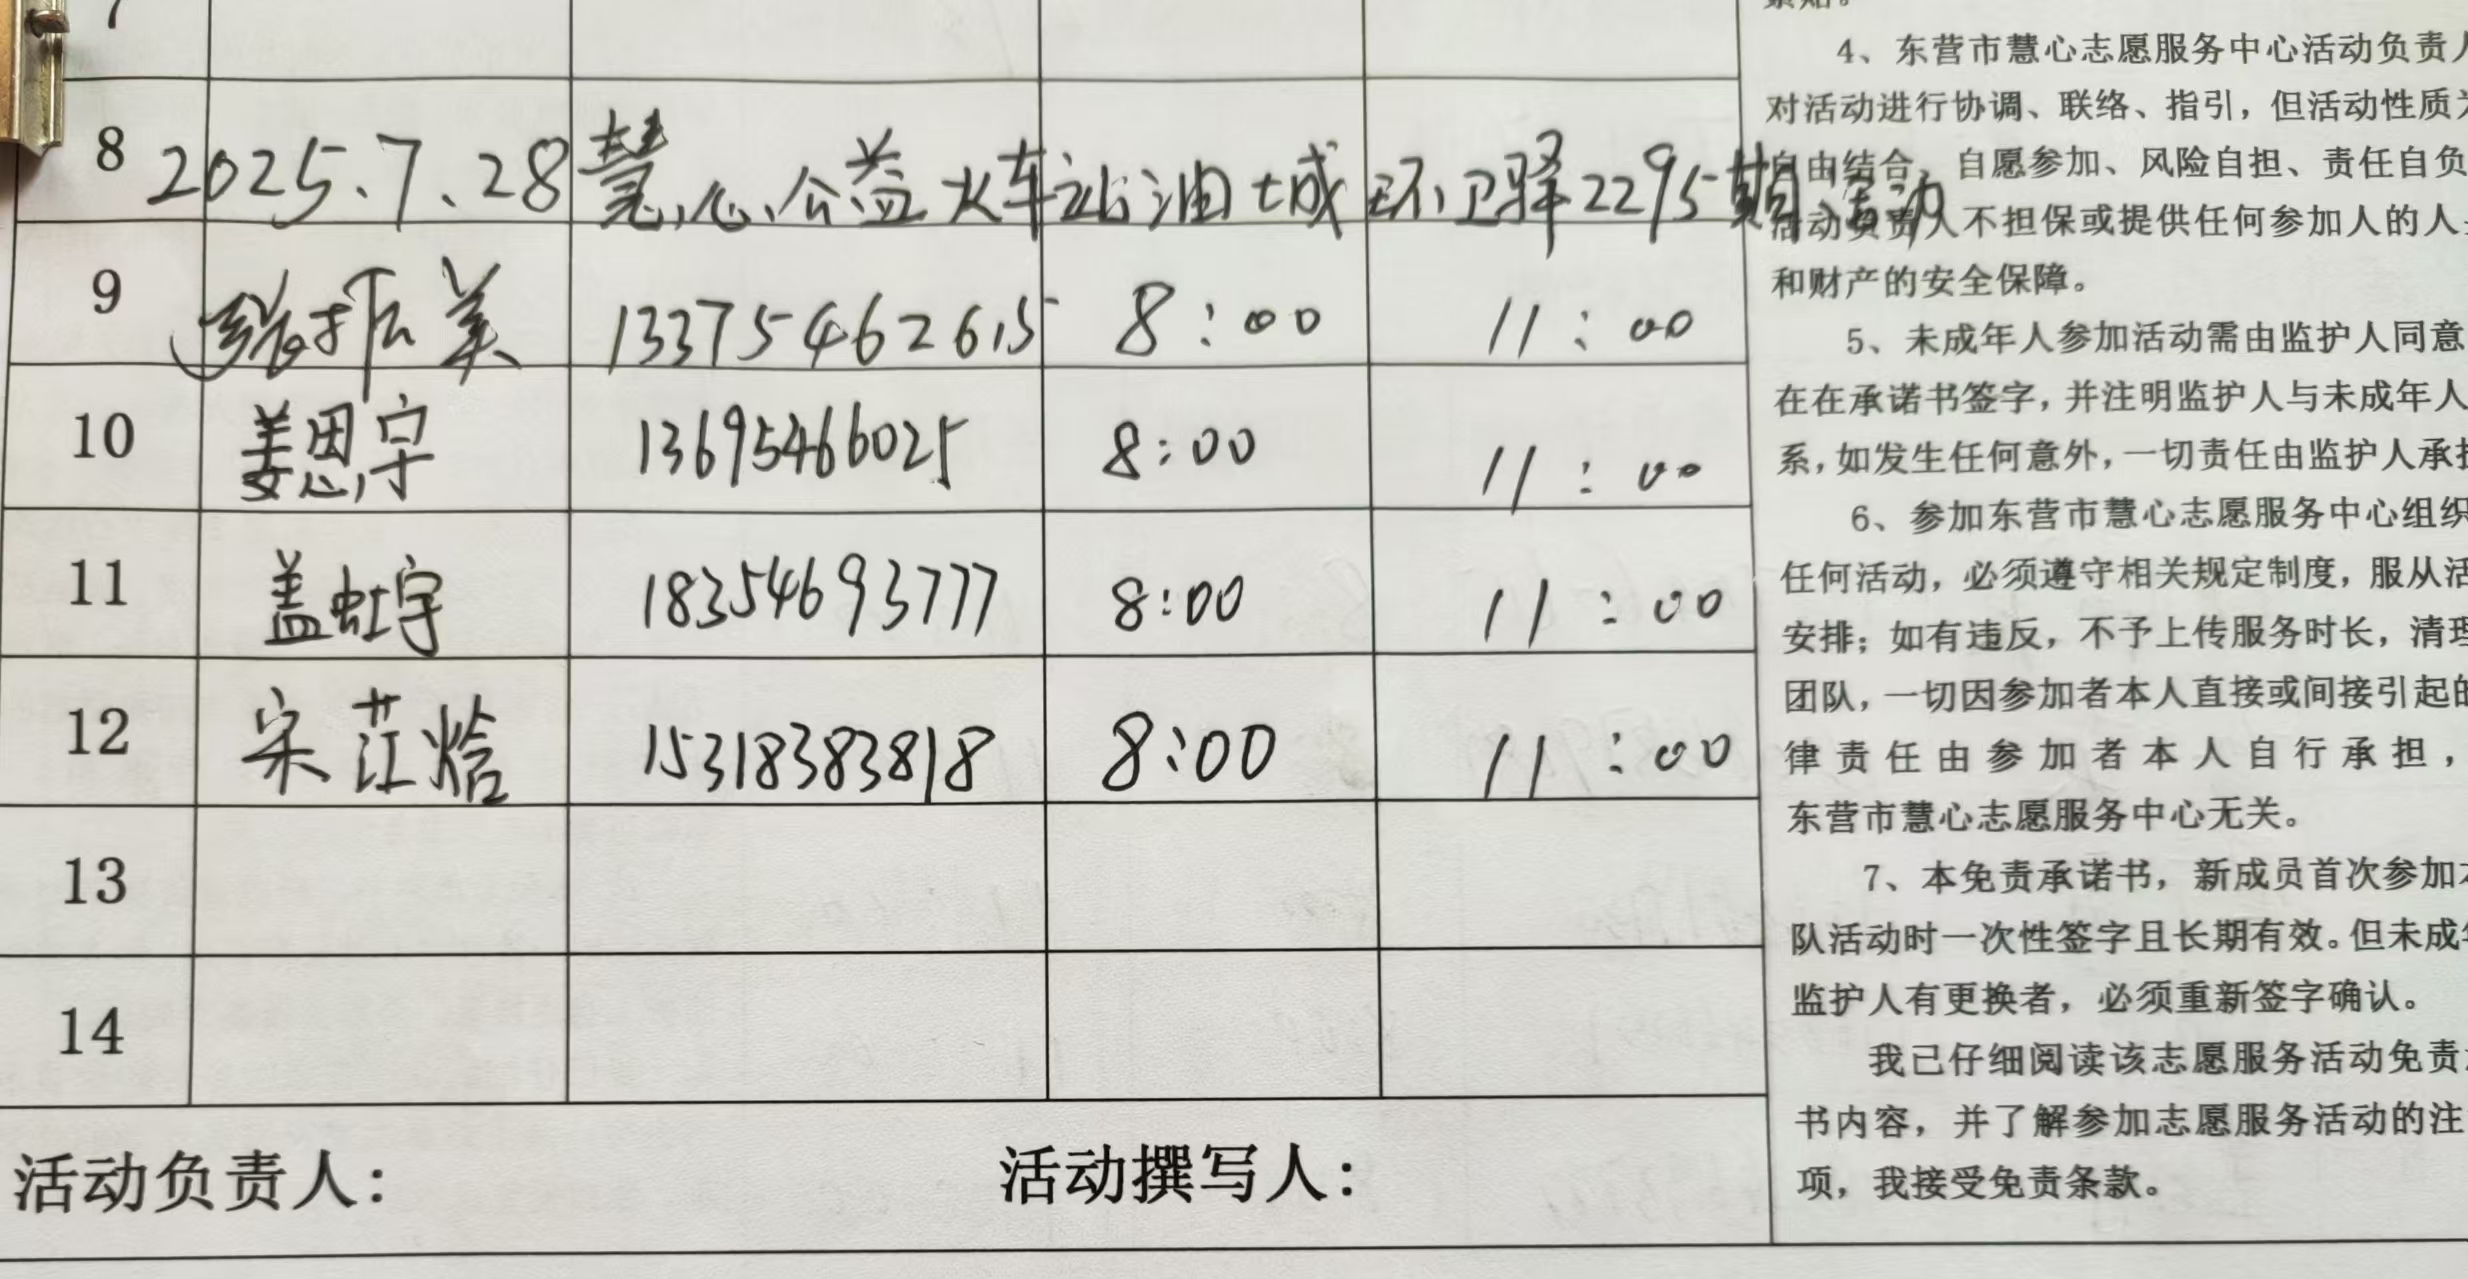 8 2025.7.28 慧心公益火车站油城环卫驿2295期活动
9 美 13375462615 8:00 11:00
10 姜恩宇 13695466025 8:00 11:00
11 盖虹宇 18354693777 8:00 11:00
12 宋茳焓 15318383818 8:00 11:00
13
14
活动负责人:
活动撰写人:
4、东营市慧心志愿服务中心活动负责人
对活动进行协调、联络、指引，但活动性质为
自由结合、自愿参加、风险自担、责任自负
活动负责人不担保或提供任何参加人的人
和财产的安全保障。
5、未成年人参加活动需由监护人同意
在在承诺书签字，并注明监护人与未成年人
系，如发生任何意外，一切责任由监护人承担
6、参加东营市慧心志愿服务中心组织
任何活动，必须遵守相关规定制度，服从活
安排；如有违反，不予上传服务时长，清理
团队，一切因参加者本人直接或间接引起的
律责任由参加者本人自行承担，
东营市慧心志愿服务中心无关。
7、本免责承诺书，新成员首次参加本
队活动时一次性签字且长期有效。但未成年
监护人有更换者，必须重新签字确认。
我已仔细阅读该志愿服务活动免责
书内容，并了解参加志愿服务活动的注
项，我接受免责条款。